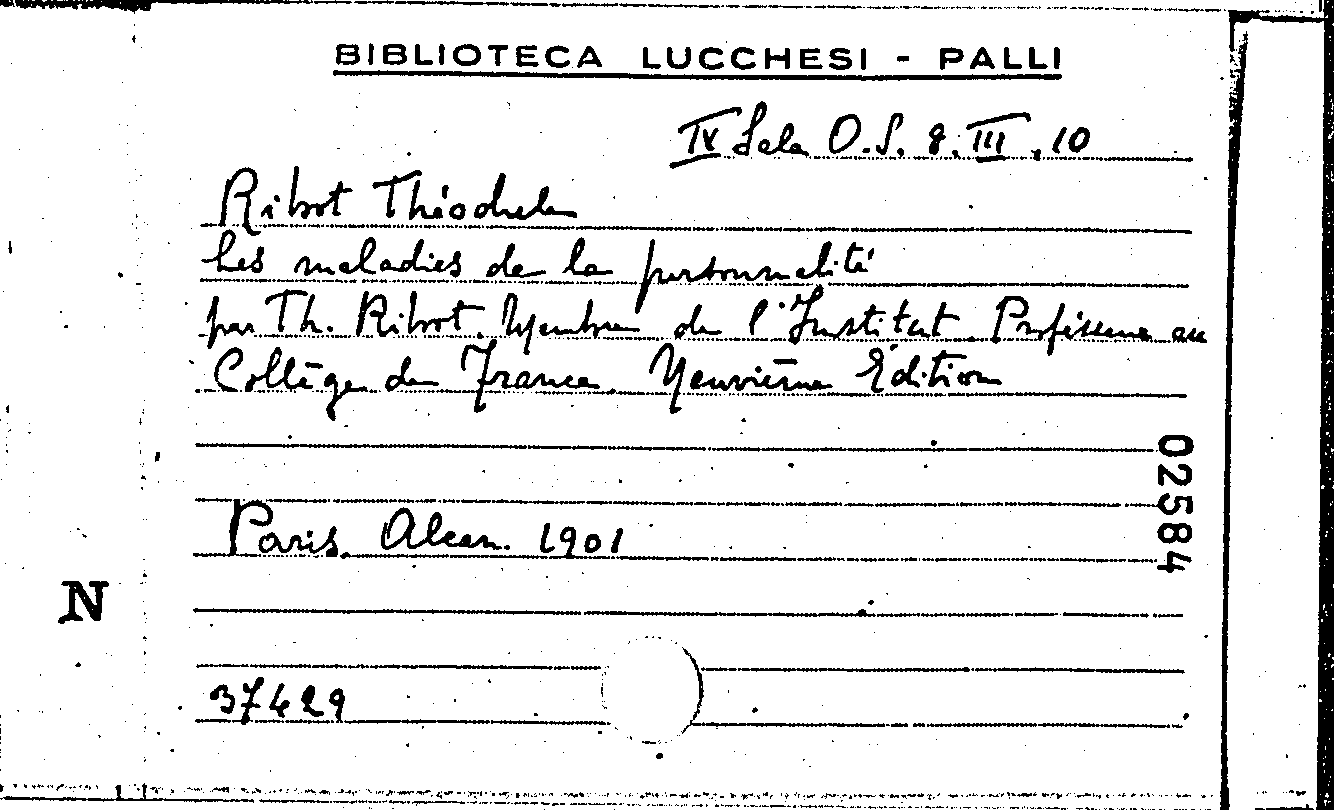 BIBLIOTECA LUCCHESI - PALLI
IV Sala O.S. 8. III. 10
Ribot Théodule
Les maladies de la personnalité
par Th. Ribot. Membre de l'Institut. Professeur au
Collège de France. Neuvième Édition
02584
Paris. Alcan. 1901
N
37429